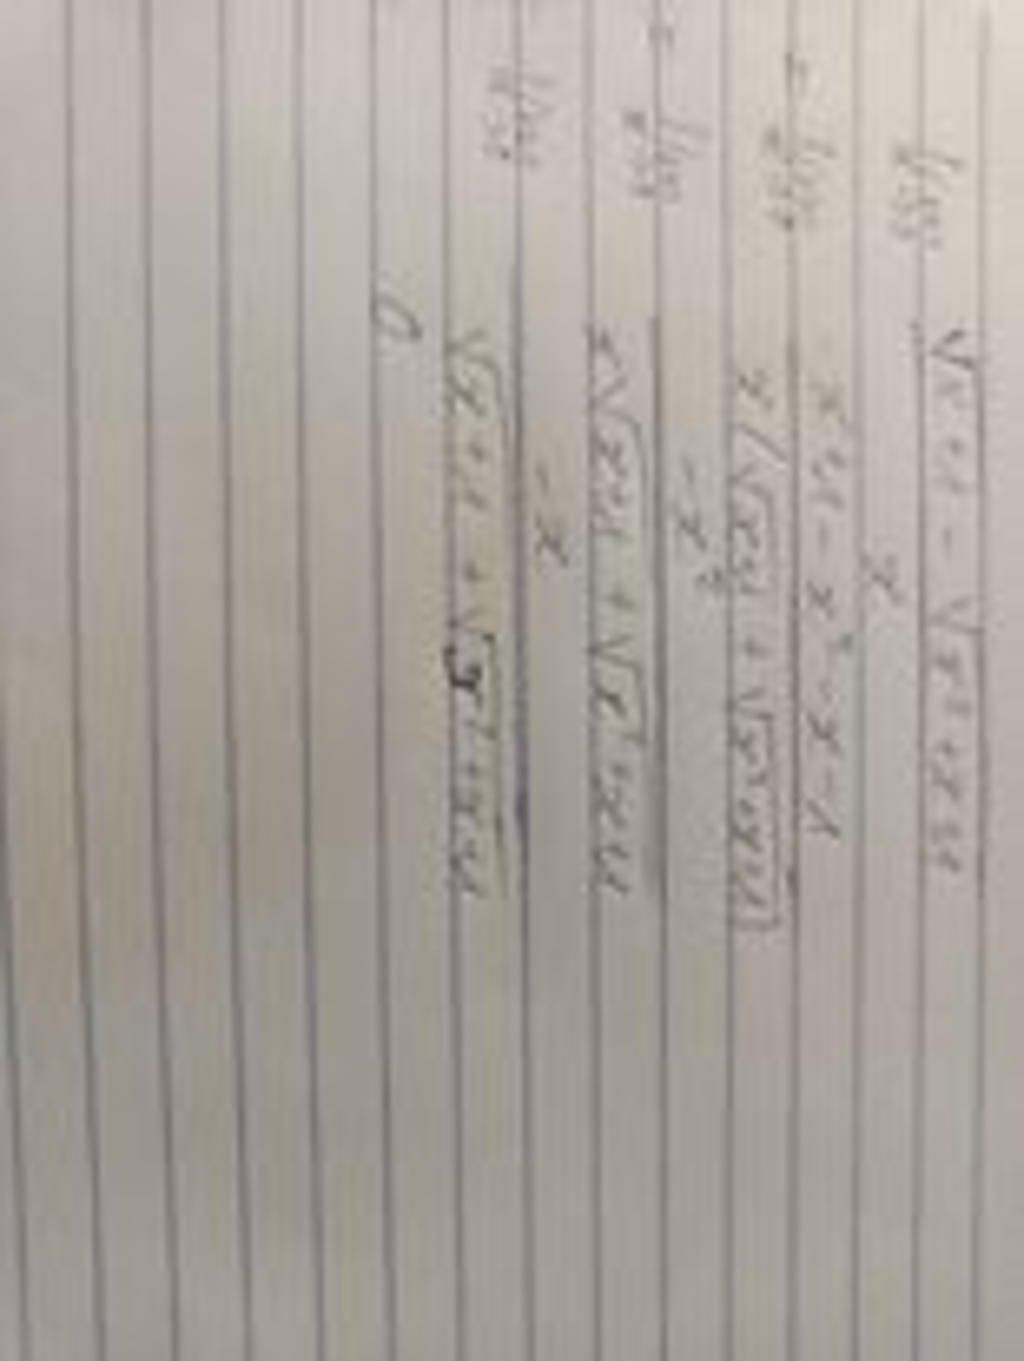 lim x→0 √x+1 - √x²+x+1 / x
= lim x→0 x+1-x²-x-1 / x(√x+1 + √x²+x+1)
= lim x→0 -x² / x√x+1 + √x²+x+1
lim x→0 -x / √x+1 + √x²+x+1
0